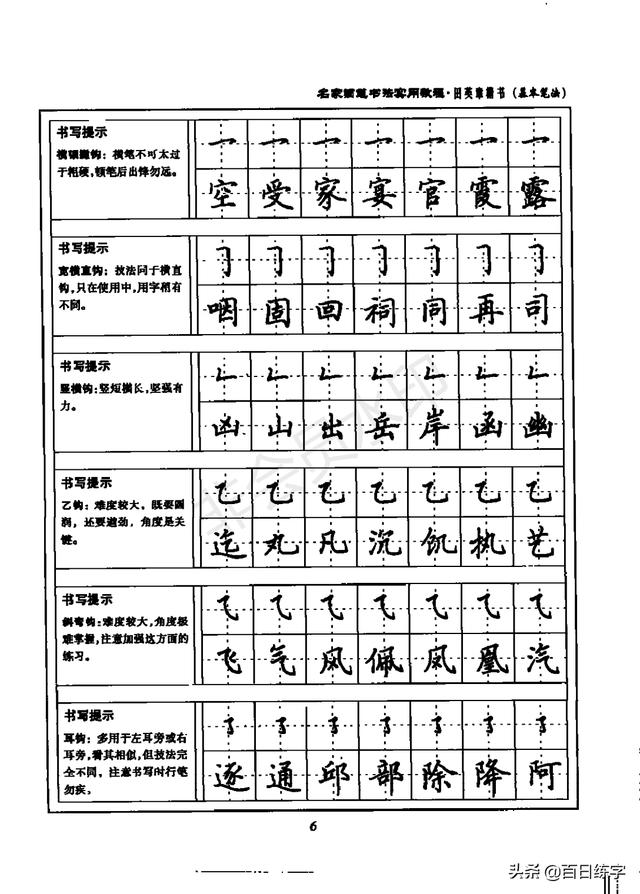 名家硬笔书法实用教程·田英章楷书(基本笔法)
书写提示
横顿撇钩:横笔不可太过
于粗硬,顿笔后出锋勿远。
空 受 家 宴 官 霞 露
书写提示
宽横直钩:技法同于横直
钩,只在使用中,用字稍有
不同。
咽 固 回 祠 同 再 司
书写提示
竖横钩:竖短横长,坚强有
力。
凶 山 出 岳 岸 函 幽
书写提示
乙钩:难度较大。既要圆
润,还要遒劲,角度是关
键。
乙 乙 乙 乙 乙 乙 乙
迄 丸 凡 沉 饥 执 艺
书写提示
斜弯钩:难度较大,角度极
难掌握,注意加强这方面的
练习。
飞 气 风 佩 凤 凰 汽
书写提示
耳钩:多用于左耳旁或右
耳旁,看其相似,但技法完
全不同,注意书写时行笔
勿疾。
逐 通 邱 部 除 降 阿
6
非会员水印
头条 @百日练字